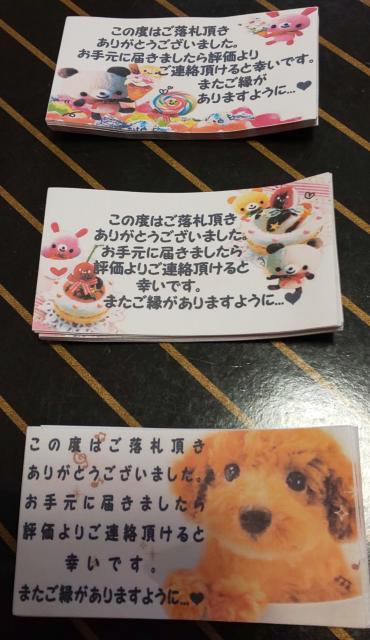 この度はご落札頂き
ありがとうございました。
お手元に届きましたら評価より
ご連絡頂けると幸いです。
またご縁が
ありますように…♥
この度はご落札頂き
ありがとうございました。
お手元に届きましたら
評価よりご連絡頂けると
幸いです。
またご縁がありますように…♥
この度はご落札頂き
ありがとうございました。
お手元に届きましたら
評価よりご連絡頂けると
幸いです。
またご縁がありますように…♥